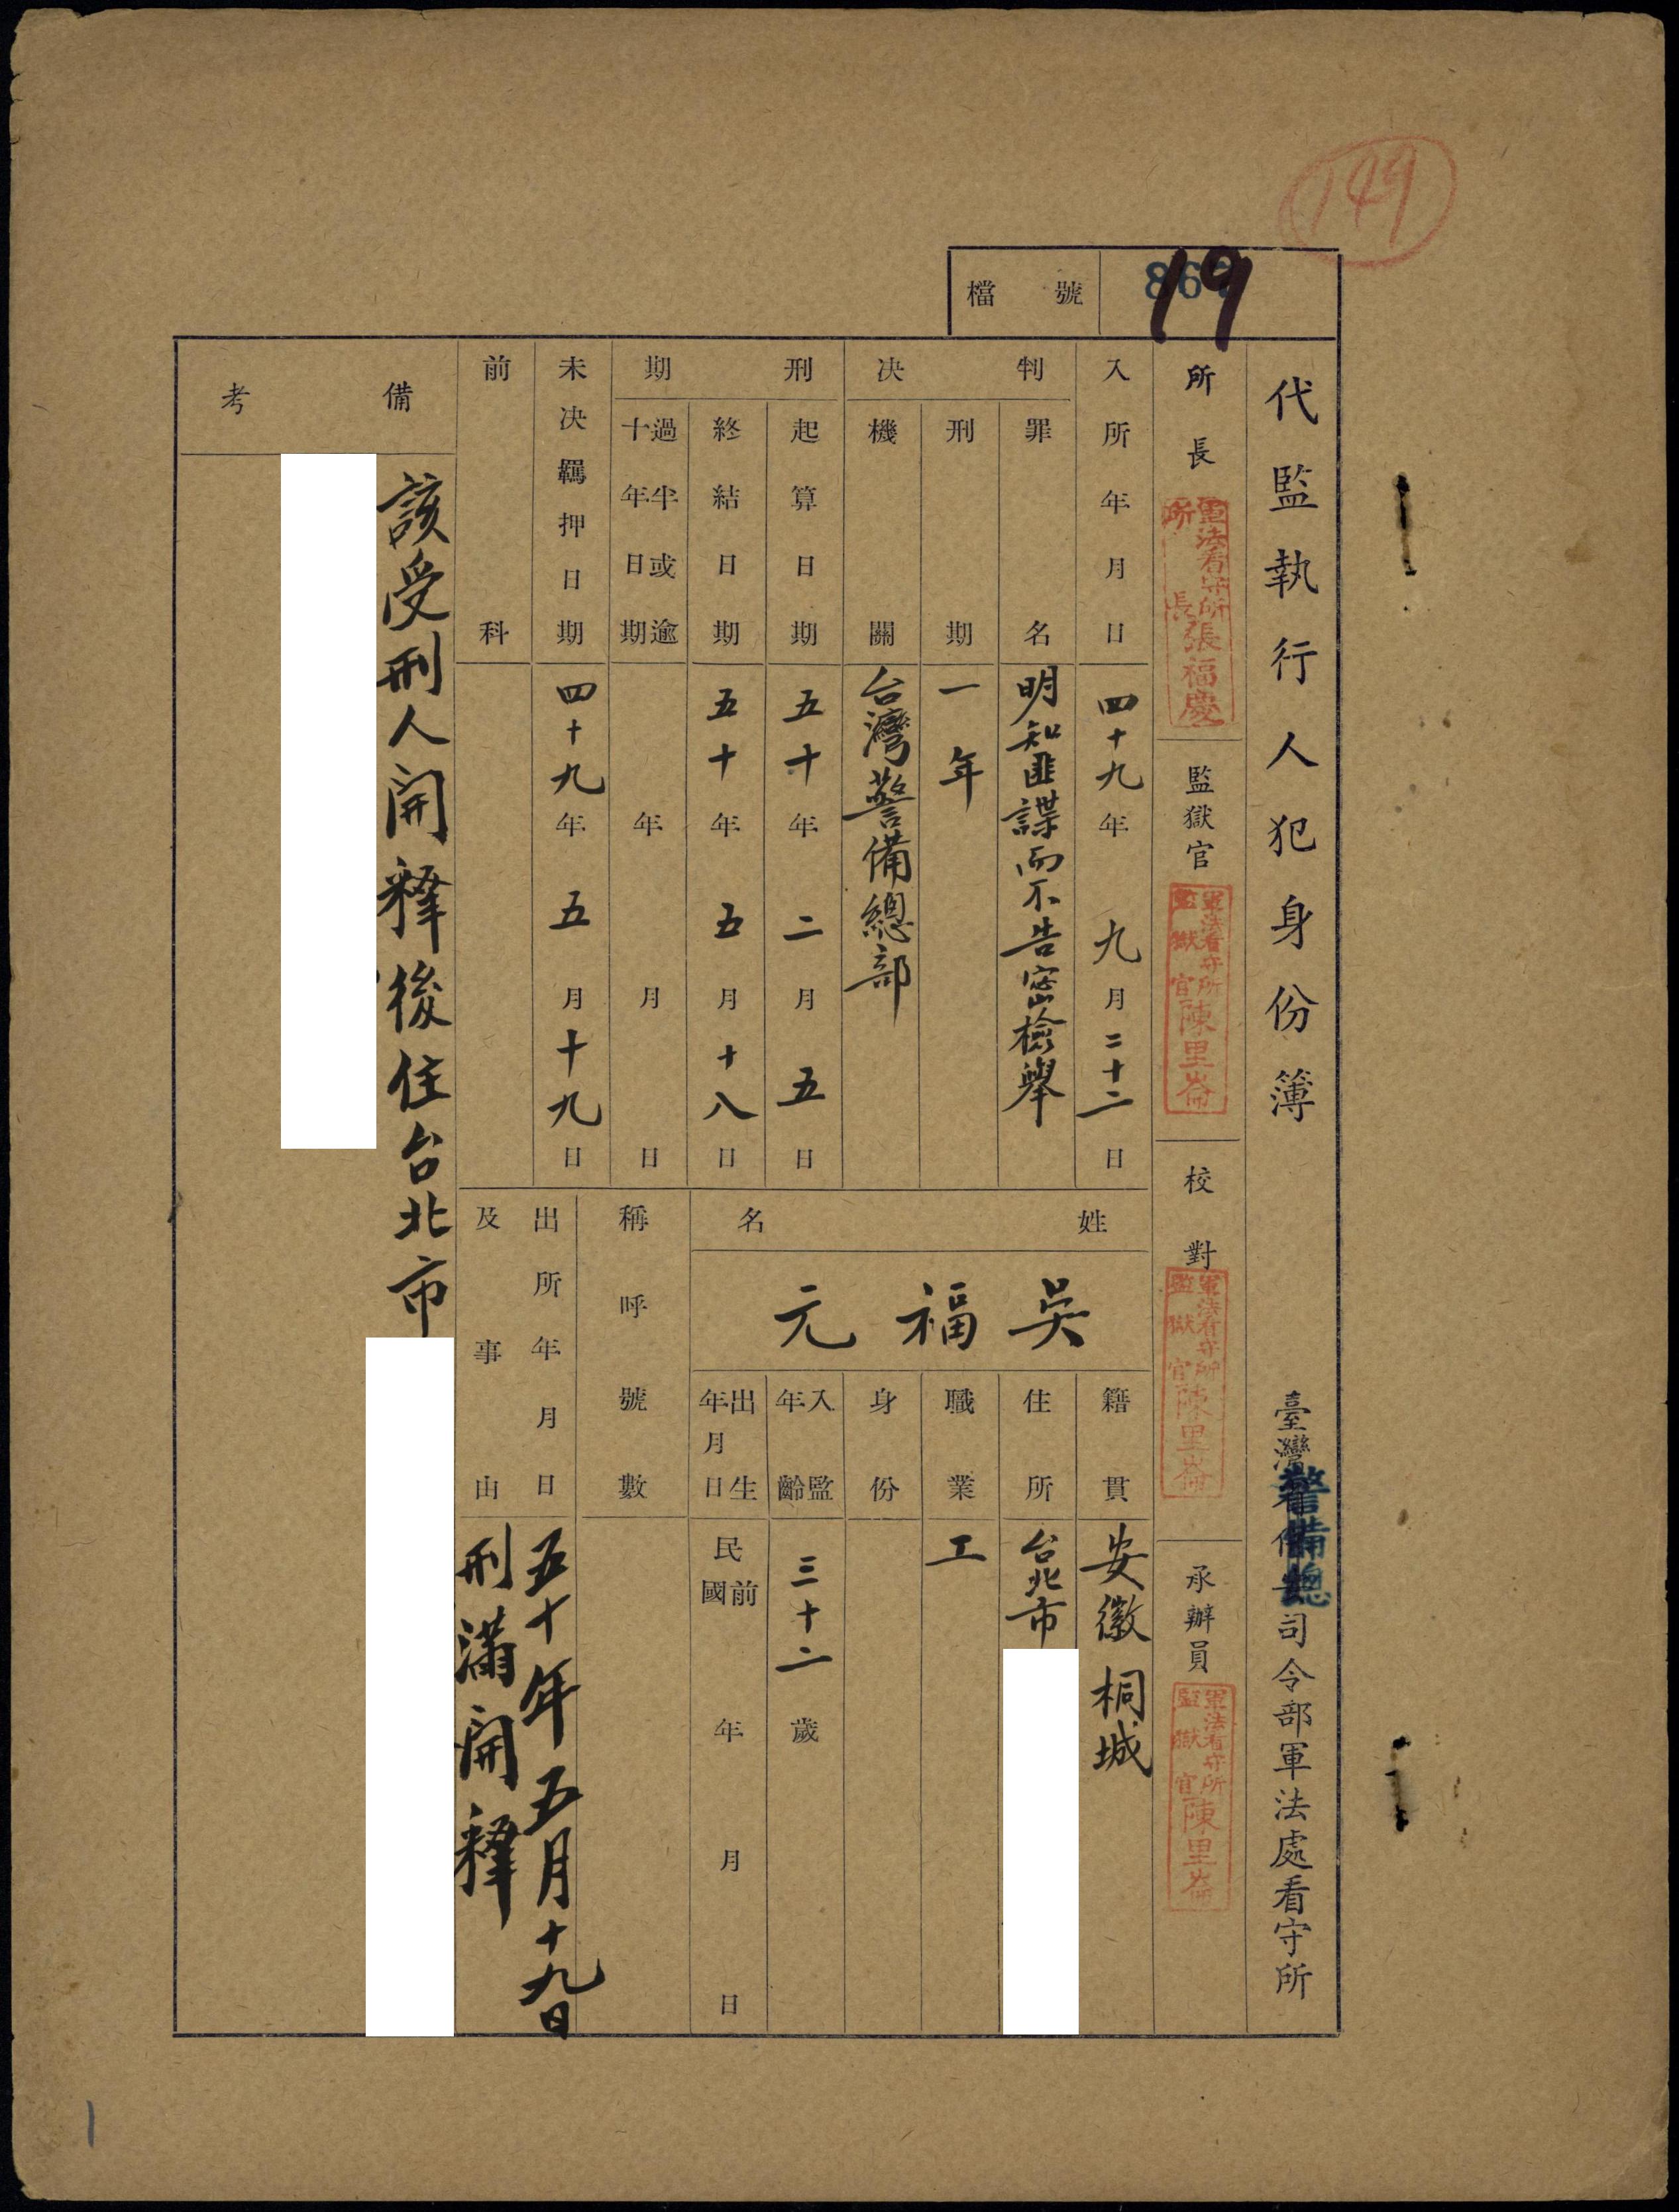 149
檔號
19
代監執行人犯身份簿
臺灣警備總司令部軍法處看守所
所長
軍法看守所所長張福慶
監獄官
軍法看守所監獄官陳里崙
校對
軍法看守所監獄官陳里崙
承辦員
軍法看守所監獄官陳里崙
入所年月日
四十九年九月二十二日
判決
罪名
明知匪諜而不告密檢舉
刑期
一年
機關
台灣警備總部
刑期
起算日期
五十年二月五日
終結日期
五十年五月十八日
過半或逾十年日期
年月日
未決羈押日期
四十九年五月十九日
前科
姓名
吳福元
籍貫
安徽桐城
住所
台北市
職業
工
身份
入監年齡
三十二歲
出生年月日
民國前年月日
稱呼號數
出所年月日及事由
五十年五月十九日
刑滿開釋
備考
該受刑人開釋後住台北市